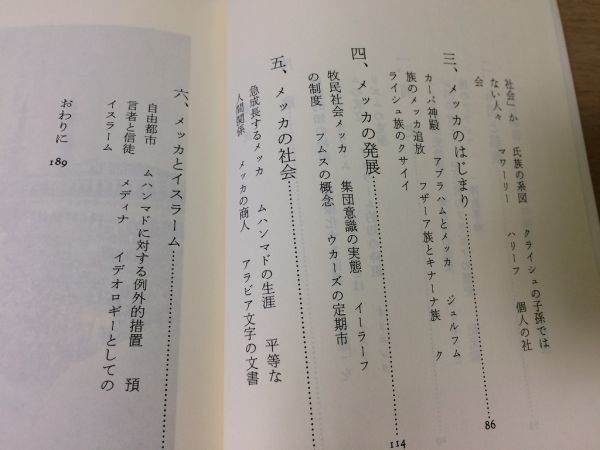 社会」か　氏族の系図　クライシュの子孫では
ない人々　マワーリー　ハリーフ　個人の社
会
三、メッカのはじまり………86
カーバ神殿　アブラハムとメッカ　ジュルフム
族のメッカ追放　フザーア族とキナーナ族　ク
ライシュ族のクサイイ
四、メッカの発展………114
牧民社会メッカ　集団意識の実態　イーラーフ
の制度　フムスの概念　ウカーズの定期市
五、メッカの社会………
急成長するメッカ　ムハンマドの生涯　平等な
人間関係　メッカの商人　アラビア文字の文書
六、メッカとイスラーム………
自由都市　ムハンマドに対する例外的措置　預
言者と信徒　メディナ　イデオロギーとしての
イスラーム
おわりに　189